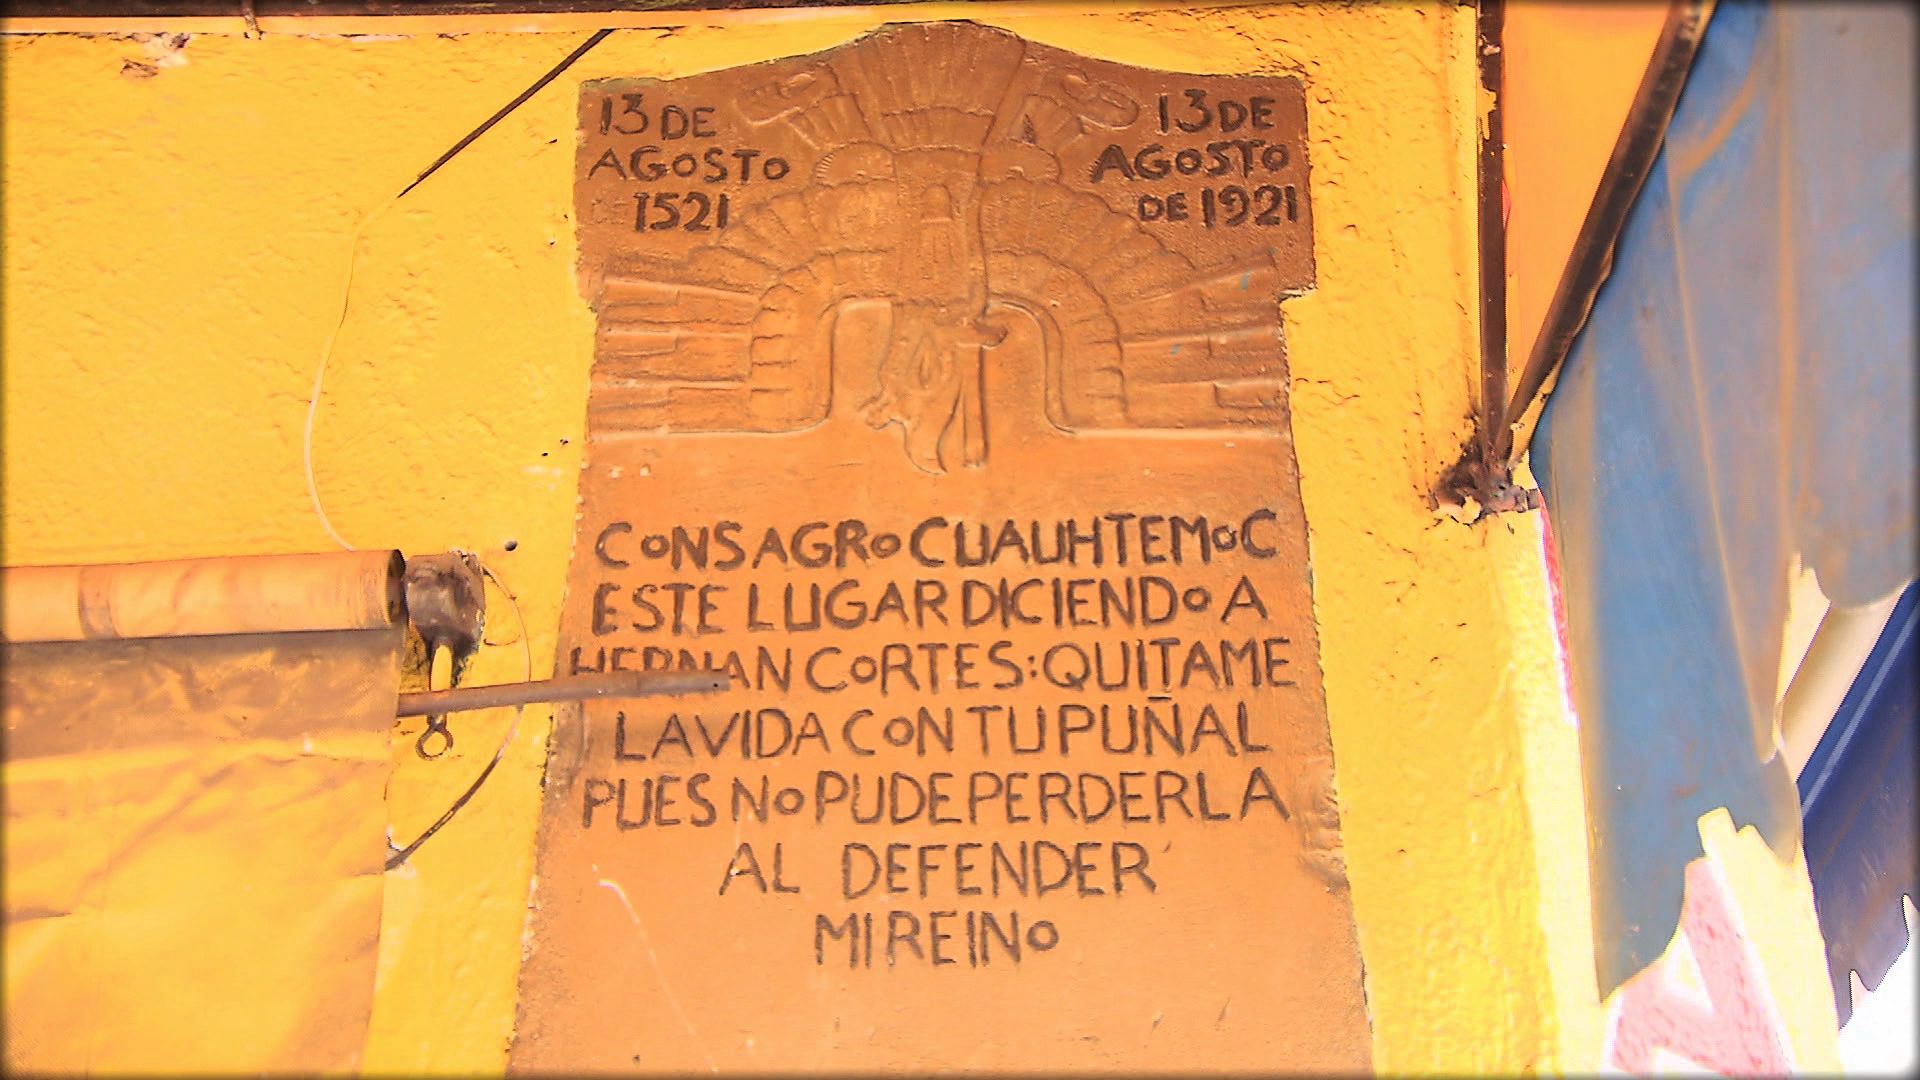 13 DE
AGOSTO
DE 1521
13 DE
AGOSTO
DE 1921
CONSAGRO CUAUHTEMOC
ESTE LUGAR DICIENDO A
HERNAN CORTES: QUITAME
LA VIDA CON TU PUÑAL
PUES NO PUDE PERDERLA
AL DEFENDER
MI REINO